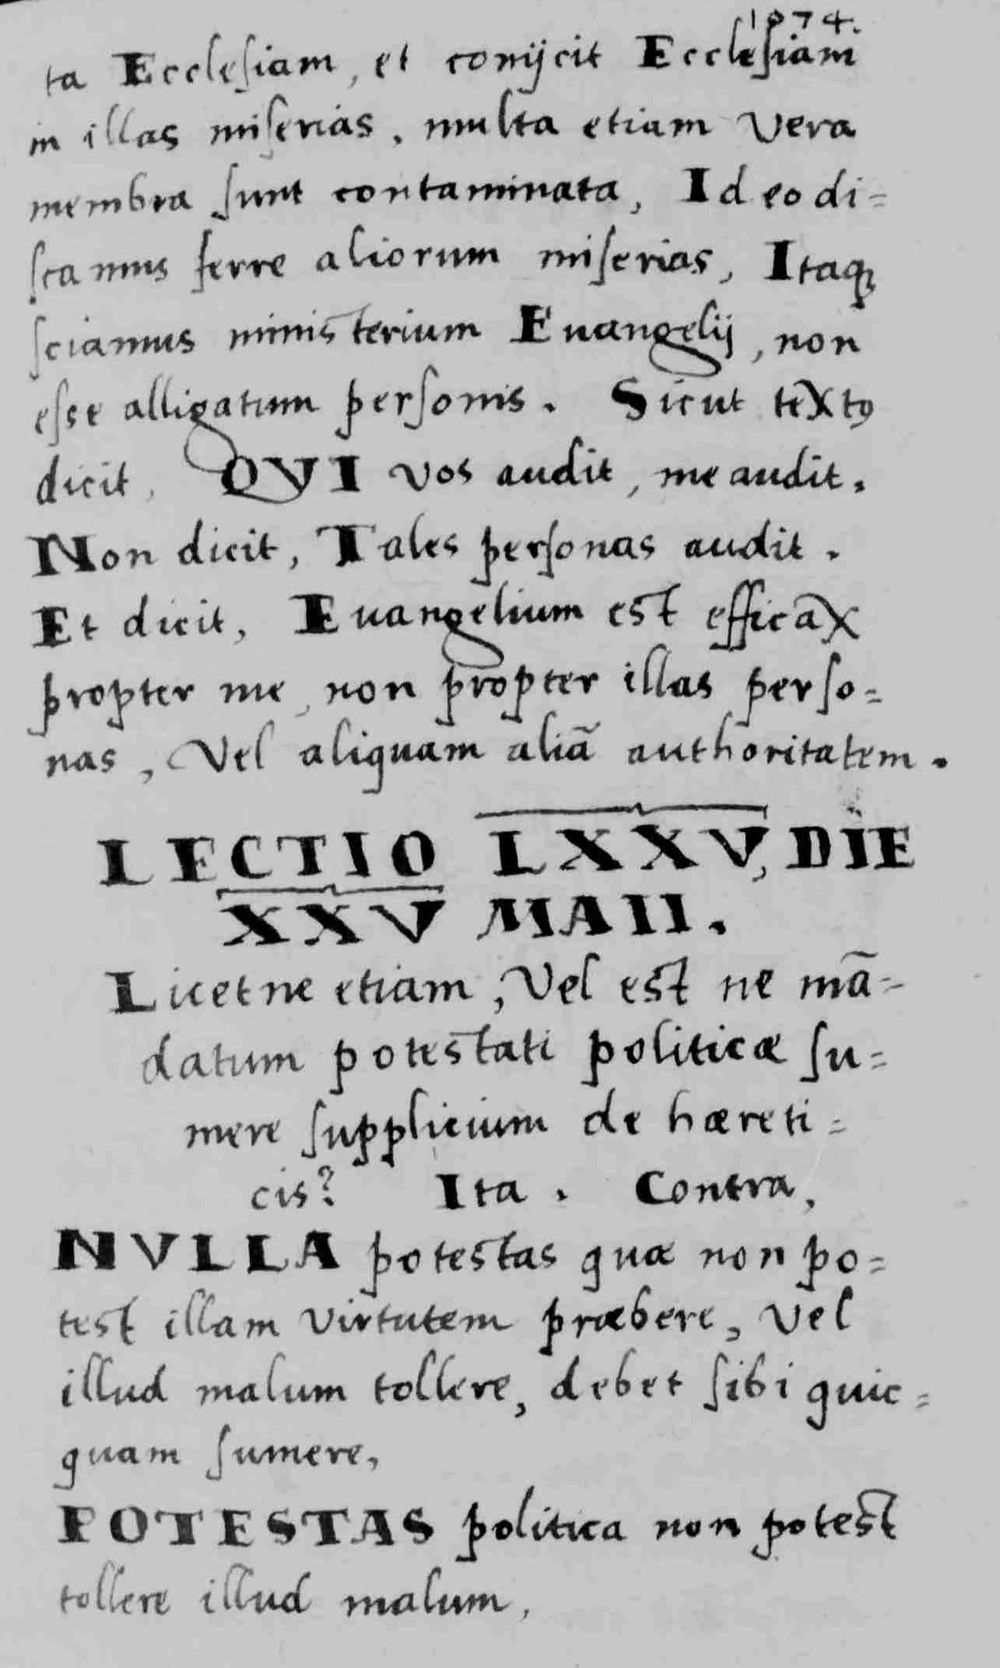 1874.
ta Ecclesiam, et conijcit Ecclesiam
in illas miserias, multa etiam vera
membra sunt contaminata, Ideo di=
scamus ferre aliorum miserias, Itaq;
sciamus ministerium Euangelij, non
esse alligatum personis. Sicut textꝰ
dicit, QVI vos audit, me audit.
Non dicit, Tales personas audit.
Et dicit, Euangelium est efficax
propter me, non propter illas perso=
nas, Vel aliquam aliã authoritatem.
LECTIO LXXV, DIE
XXV MAII.
Licetne etiam, Vel est ne mã=
datum potestati politicæ su=
mere supplicium de hæreti=
cis? Ita. Contra,
NVLLA potestas quæ non po=
test illam virtutem præbere, Vel
illud malum tollere, debet sibi quic=
quam sumere,
POTESTAS politica non potest
tollere illud malum,